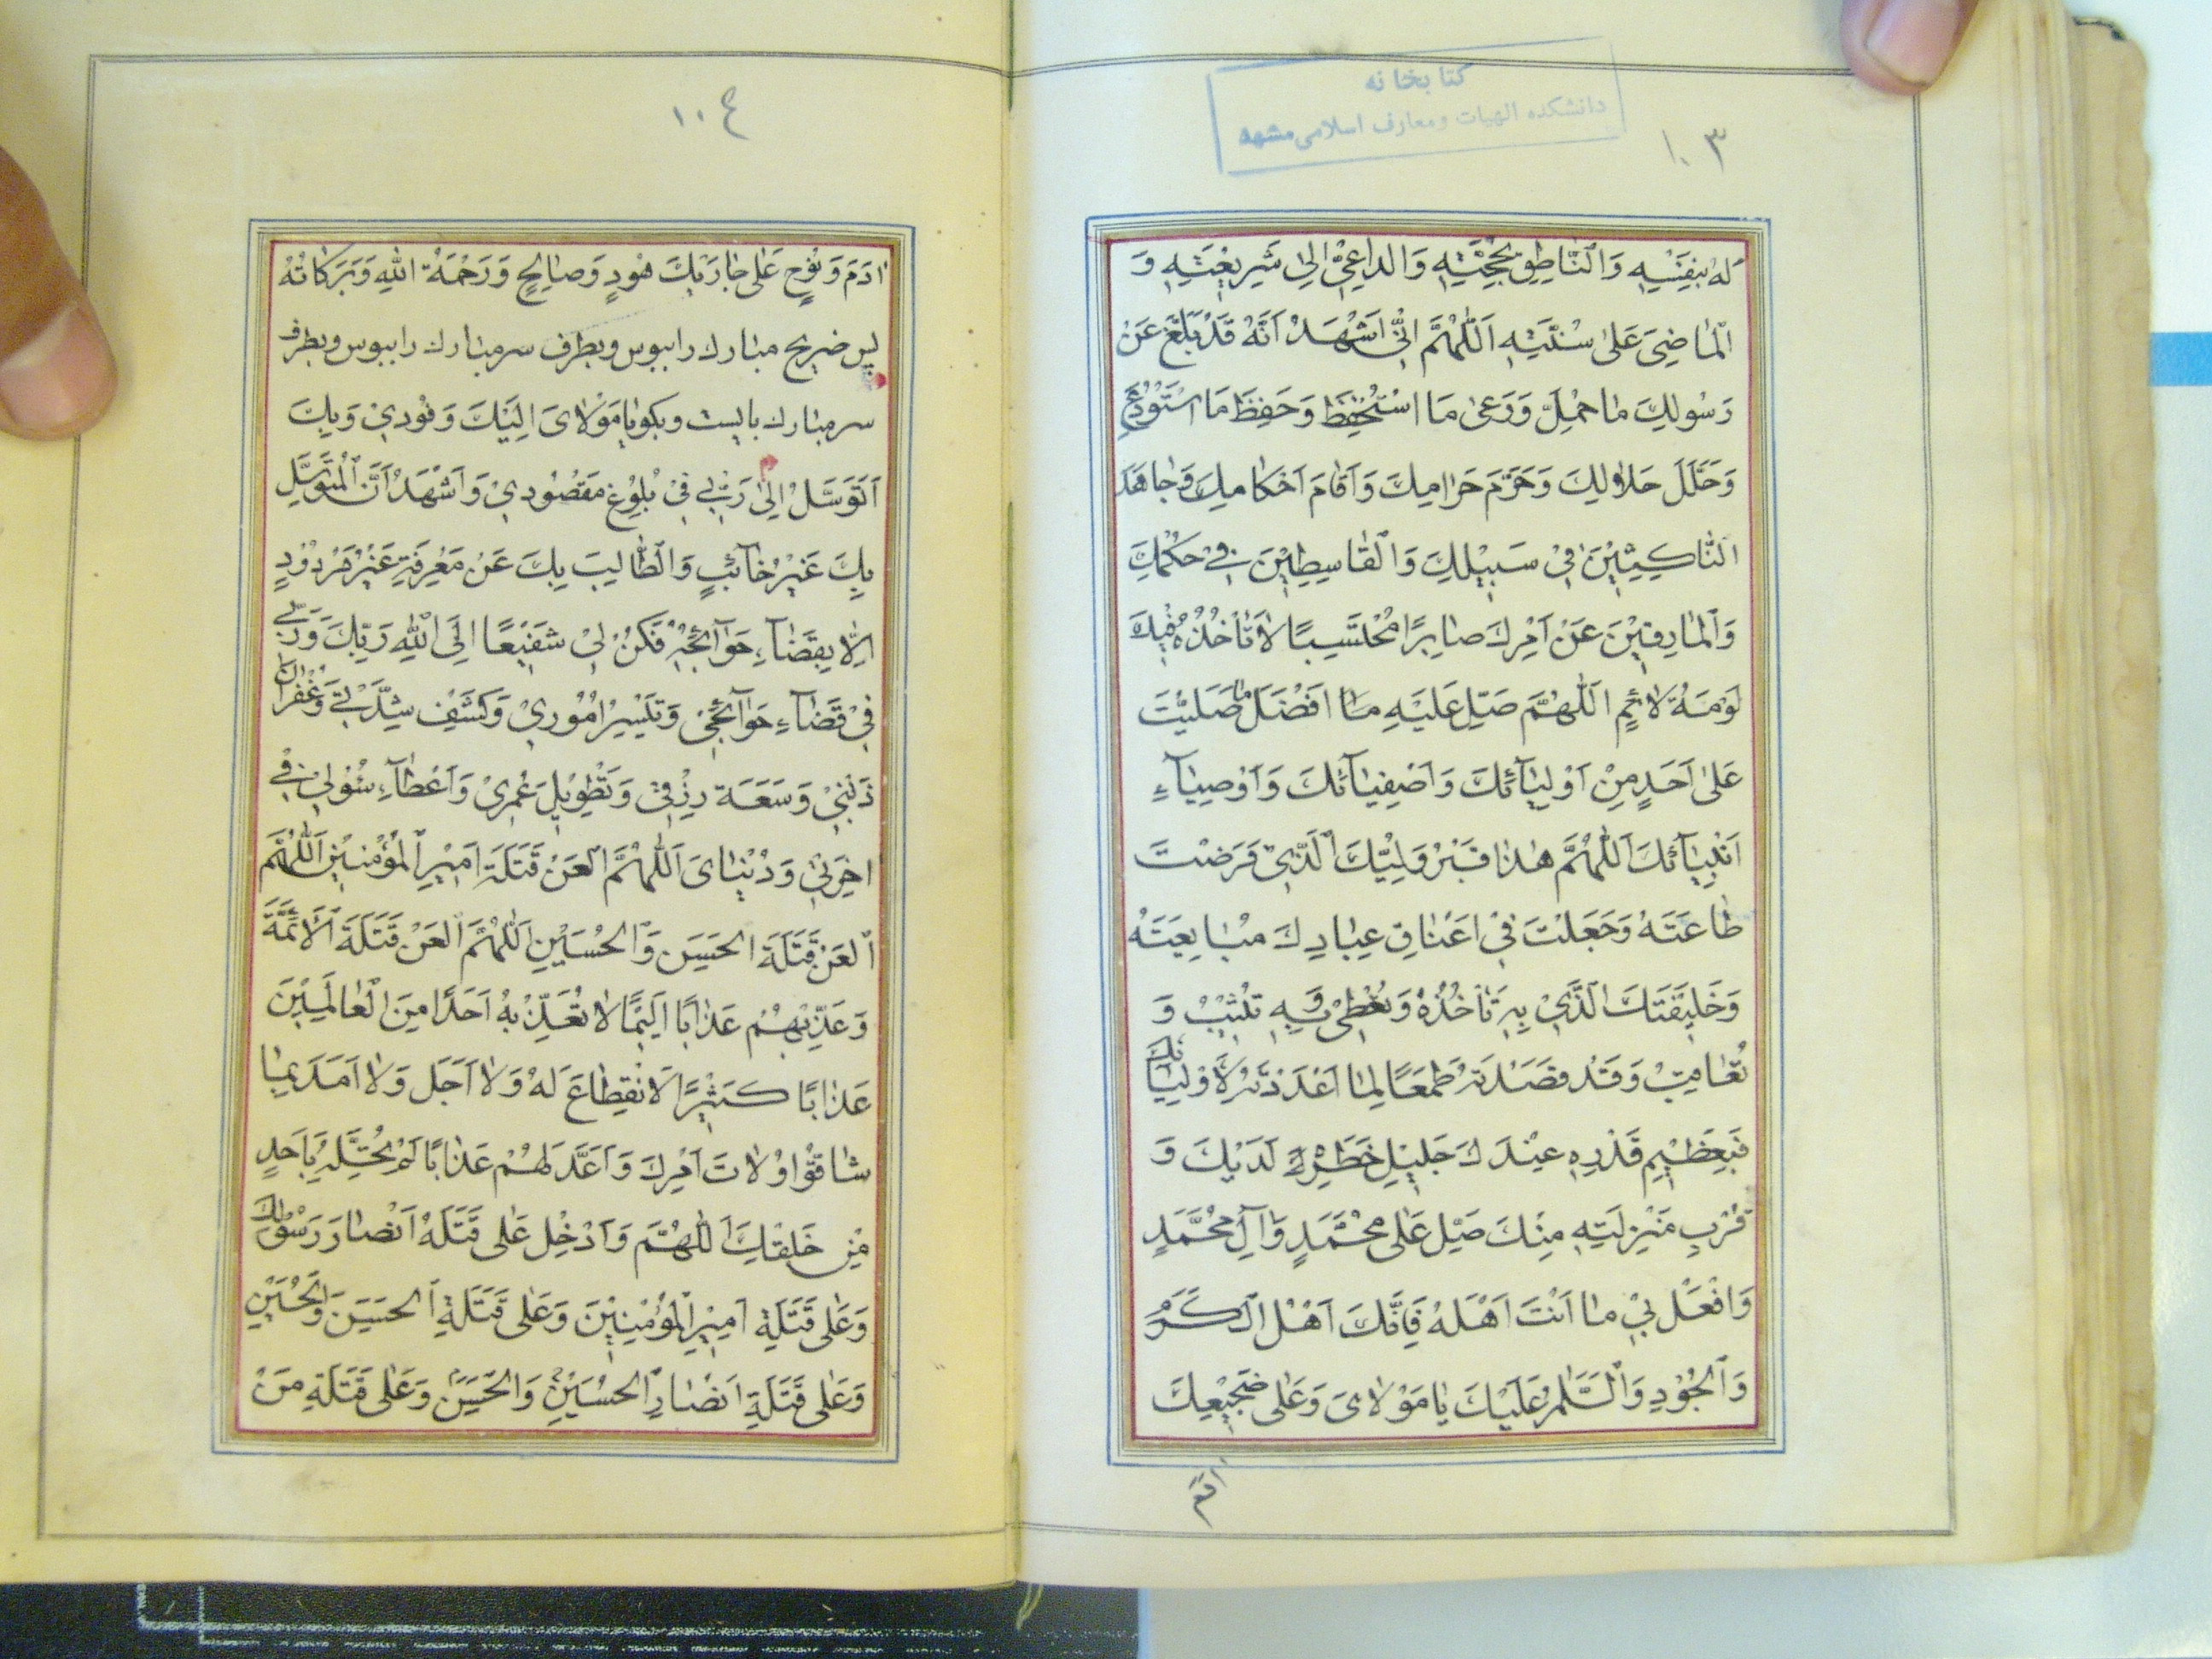 كتابخانه
دانشكده الهيات ومعارف اسلامى مشهد
١٠٣
لَهُ بِنَفْسِهِ وَالنَّاطِقِ بِحُجَّتِهِ وَالدَّاعِي اِلىٰ شَرِيعَتِهِ وَ
الْمَاضِيَ عَلىٰ سُنَّتِهِ اَللّٰهُمَّ اِنّي اَشْهَدُ اَنَّهُ قَدْ بَلَّغَ عَنْ
رَسُولِكَ مَا حُمِّلَ وَرَعىٰ مَا اسْتُحْفِظَ وَحَفِظَ مَا اسْتُوْدِعَ
وَحَلَّلَ حَلَالَكَ وَحَرَّمَ حَرَامَكَ وَاَقَامَ اَحْكَامَكَ وَجَاهَدَ
النَّاكِثِيْنَ فِيْ سَبِيْلِكَ وَالْقَاسِطِيْنَ فِي حُكْمِكَ
وَالْمَارِقِيْنَ عَنْ اَمْرِكَ صَابِرًا مُحْتَسِبًا لَا تَأْخُذُهُ فِيْكَ
لَوْمَةُ لَائِمٍ اَللّٰهُمَّ صَلِّ عَلَيْهِ اَفْضَلَ مَا صَلَّيْتَ
عَلىٰ اَحَدٍ مِنْ اَوْلِيَآئِكَ وَاَصْفِيَآئِكَ وَاَوْصِيَآءِ
اَنْبِيَآئِكَ اَللّٰهُمَّ هٰذَا قَبْرُ وَلِيِّكَ الَّذِيْ فَرَضْتَ
طَاعَتَهُ وَجَعَلْتَ فِيْ اَعْنَاقِ عِبَادِكَ مُبَايَعَتَهُ
وَخَلِيْفَتِكَ الَّذِيْ بِهِ تَأْخُذُ وَتُعْطِيْ وَبِهِ تُثِيْبُ وَ
تُعَاقِبُ وَقَدْ قَصَدْتُهُ طَمَعًا لِمَا اَعْدَدْتَهُ لِاَوْلِيَائِكَ
فَبِعَظِيْمِ قَدْرِهِ عِنْدَكَ جَلِيْلِ خَطَرِهِ لَدَيْكَ وَ
قُرْبِ مَنْزِلَتِهِ مِنْكَ صَلِّ عَلىٰ مُحَمَّدٍ وَآلِ مُحَمَّدٍ
وَافْعَلْ بِيْ مَا اَنْتَ اَهْلُهُ فَاِنَّكَ اَهْلُ الْكَرَمِ
وَالْجُوْدِ وَالسَّلَامُ عَلَيْكَ يَا مَوْلَايَ وَعَلىٰ ضَجِيْعَيْكَ
اٰدَمَ
١٠٤
اٰدَمَ وَنُوْحٍ عَلىٰ جَارَيْكَ هُودٍ وَصَالِحٍ وَرَحْمَةُ اللهِ وَبَرَكَاتُهُ
پس ضريح مبارك را ببوس وبطرف سر مبارك را ببوس وبطرف
سر مبارك بايست وبكو يَا مَوْلَايَ اِلَيْكَ وُفُوْدِيْ وَبِكَ
اَتَوَسَّلُ اِلىٰ رَبّي فِيْ بُلُوْغِ مَقْصُوْدِيْ وَاَشْهَدُ اَنَّ الْمُتَوَسِّلَ
بِكَ غَيْرُ خَآئِبٍ وَالطَّالِبَ بِكَ عَنْ مَعْرِفَةٍ غَيْرُ مَرْدُوْدٍ
اِلَّا بِقَضَآءِ حَوَآئِجِهِ فَكُنْ لِيْ شَفِيْعًا اِلَى اللهِ رَبِّكَ وَرَبّي
فِيْ قَضَآءِ حَوَآئِجِيْ وَتَيْسِيْرِ اُمُوْرِيْ وَكَشْفِ شِدَّتِيْ وَغُفْرَانِ
ذَنْبِيْ وَسَعَةِ رِزْقِيْ وَتَطْوِيْلِ عُمْرِيْ وَاَعْطَآءِ سُؤْلِيْ فِي
اٰخِرَتِيْ وَدُنْيَايَ اَللّٰهُمَّ الْعَنْ قَتَلَةَ اَمِيْرِ الْمُؤْمِنِيْنَ اَللّٰهُمَّ
الْعَنْ قَتَلَةَ الْحَسَنِ وَالْحُسَيْنِ اَللّٰهُمَّ الْعَنْ قَتَلَةَ الْاَئِمَّةِ
وَعَذِّبْهُمْ عَذَابًا اَلِيْمًا لَا تُعَذِّبُهُ اَحَدًا مِنَ الْعَالَمِيْنَ
عَذَابًا كَثِيْرًا لَا انْقِطَاعَ لَهُ وَلَا اَجَلَ وَلَا اَمَدَ بِمَا
شَاقُّوْا وُلَاتَ اَمْرِكَ وَاَعِدَّ لَهُمْ عَذَابًا لَمْ تُحِلَّهُ بِاَحَدٍ
مِنْ خَلْقِكَ اَللّٰهُمَّ وَاَدْخِلْ عَلىٰ قَتَلَةِ اَنْصَارِ رَسُوْلِكَ
وَعَلىٰ قَتَلَةِ اَمِيْرِ الْمُؤْمِنِيْنَ وَعَلىٰ قَتَلَةِ الْحَسَنِ وَالْحُسَيْنِ
وَعَلىٰ قَتَلَةِ اَنْصَارِ الْحُسَيْنِ وَالْحَسَنِ وَعَلىٰ قَتَلَةِ مَنْ